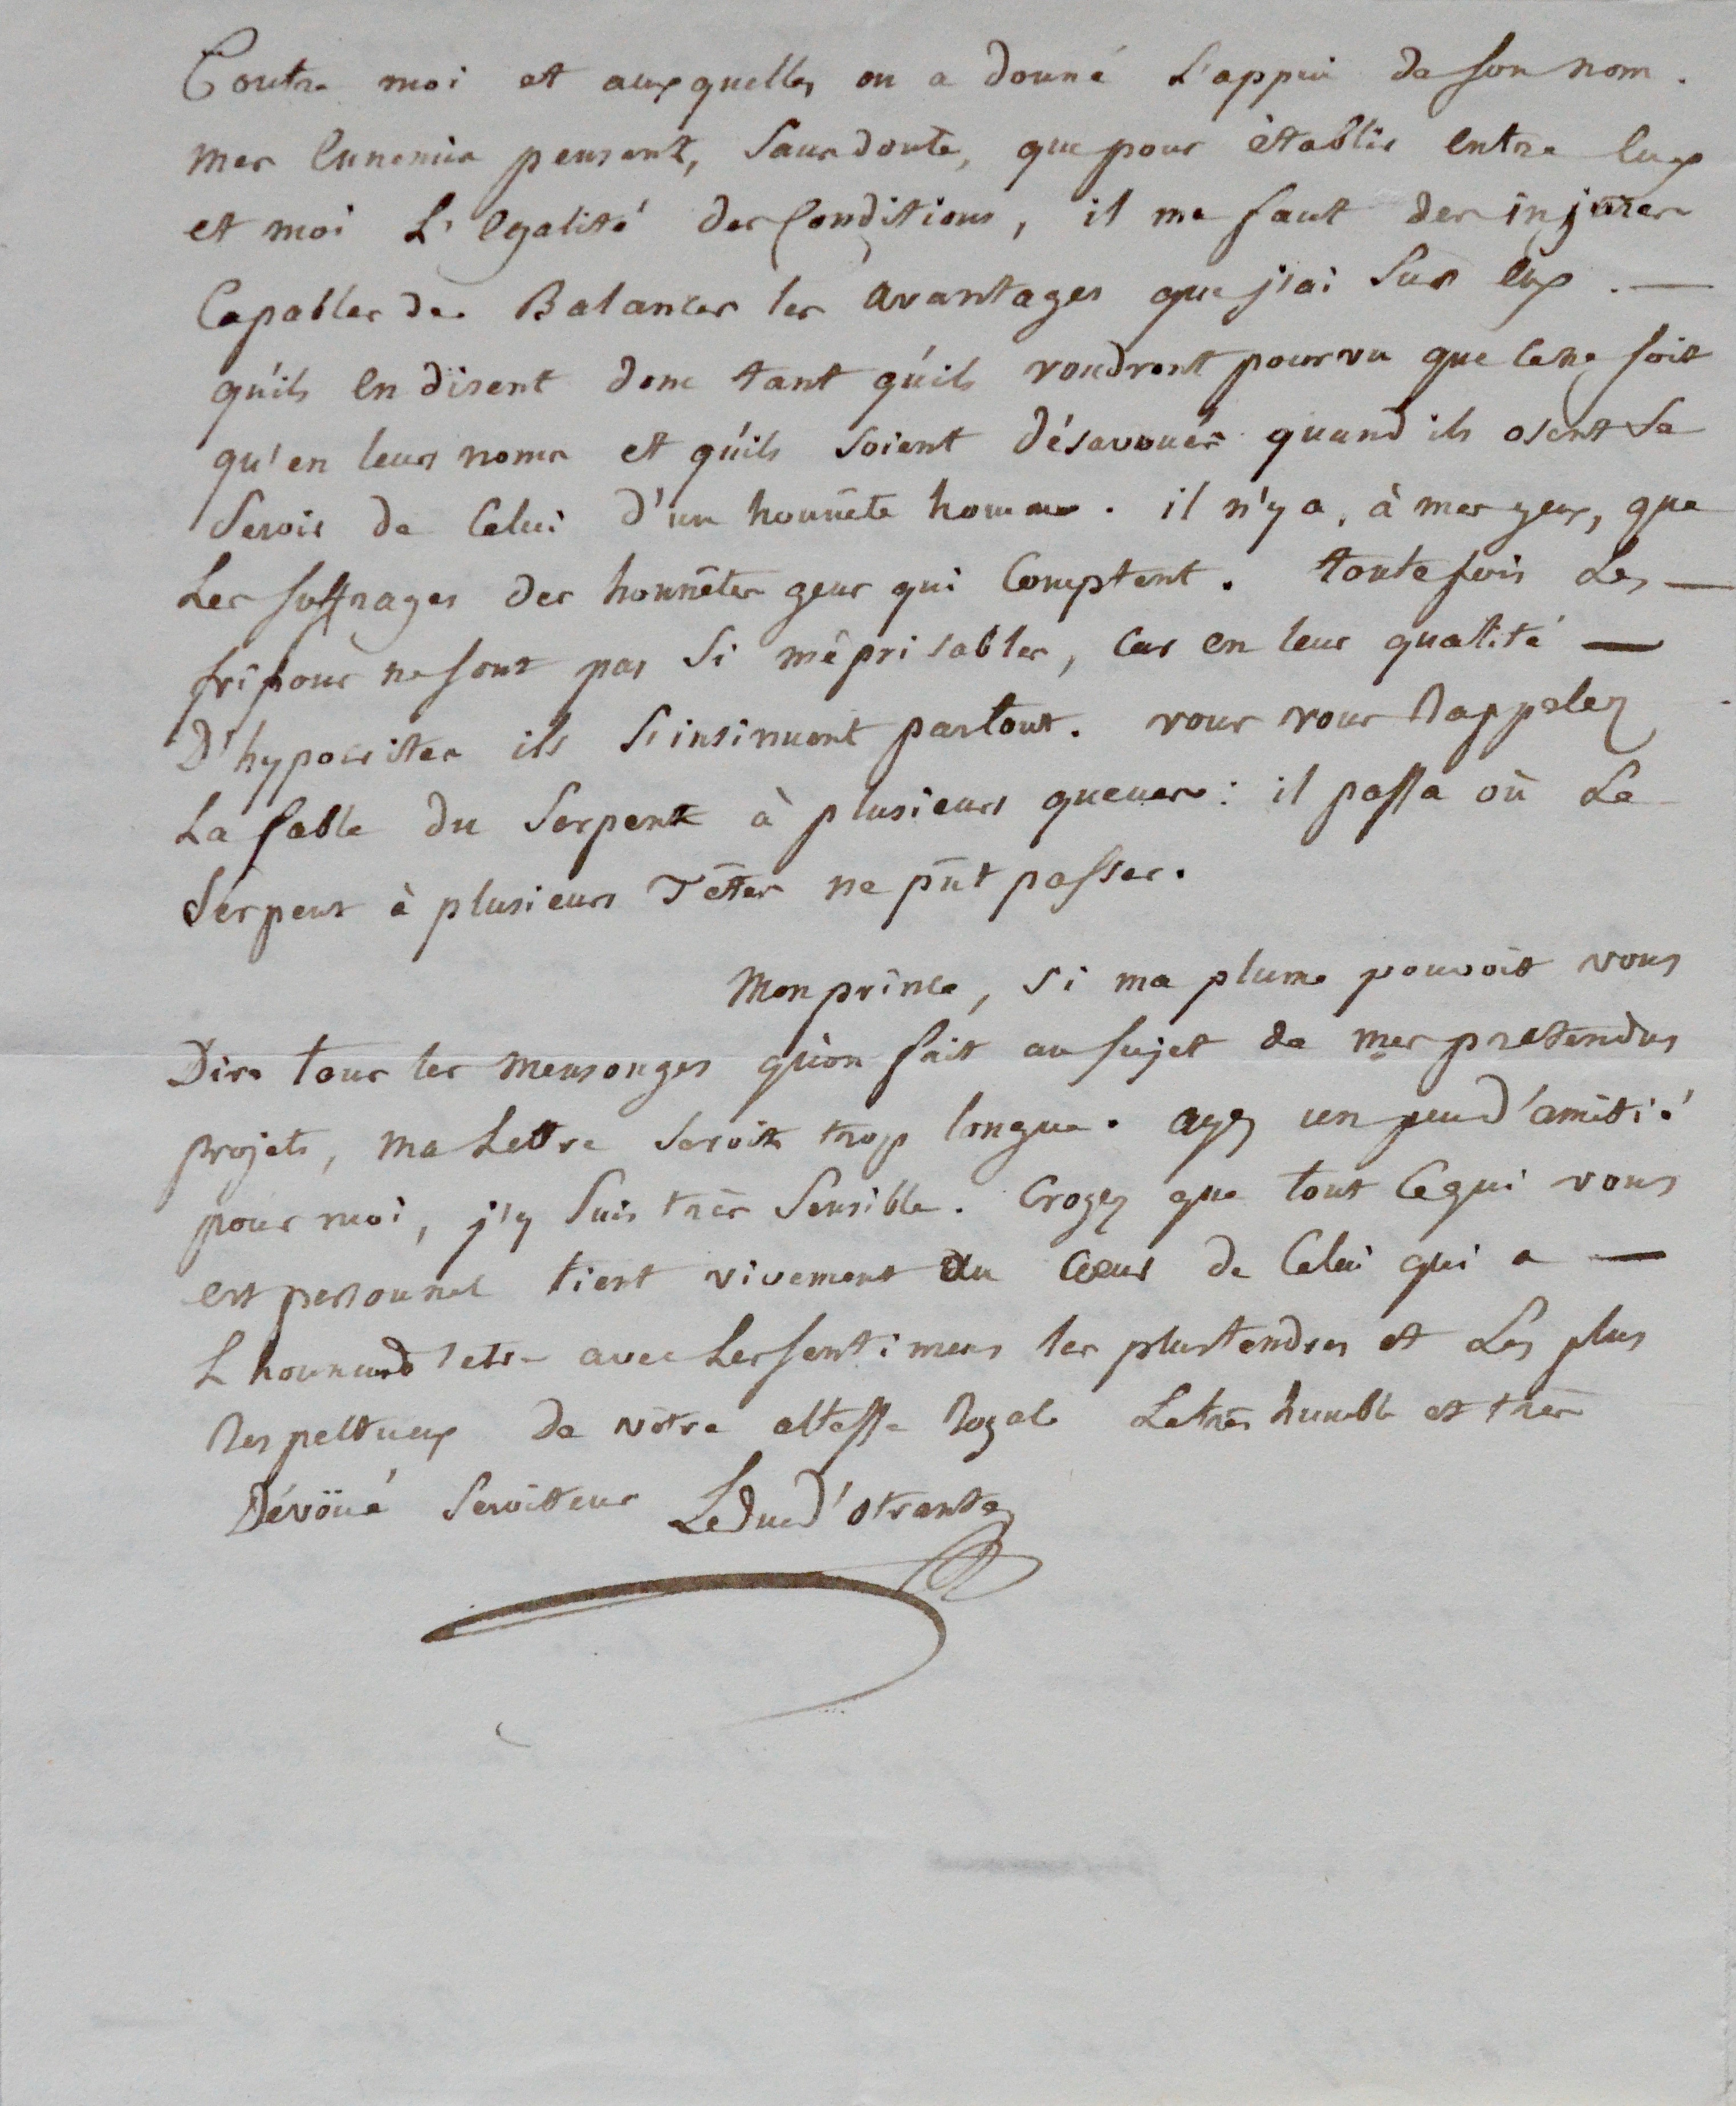 Contre moi et auxquelles on a donné L'appui de son nom.
mes Ennemis pensent, sans doute, que pour ètablir entre Eux
et moi L'Egalité des Conditions, il me faut des injures
Capables de Balancer les avantages que j'ai Sur Eux. —
qu'ils En disent donc tant qu'ils voudront pourvu que Ce ne soit
qu'en leurs noms et qu'ils soient désavoués quand ils osent Se
Servir de Celui d'un honnête homme. il n'y a, à mes yeux, que
Les suffrages des honnêtes gens qui Comptent. toute fois Les —
fripons ne sont pas Si méprisables, Car en leur qualité —
D'hypocrites ils S'insinuent partout. vous vous Rappelez
La fable du Serpent à plusieurs queues: il passa où Le
Serpent à plusieurs Têtes ne pût passer.
Mon prince, Si ma plume pouvoit vous
Dire tous les mensonges qu'on fait au sujet de mes pretendus
projets, ma Lettre Seroit trop longue. ayez un peu d'amitié
pour moi, j'y Suis très Sensible. Croyez que tout Ce qui vous
Est personnel tient vivement au Coeur de Celui qui a —
L'honneur d'etre avec Les sentimens les plus tendres et Les plus
Respectueux de vôtre altesse Royale Le très humble et très
Dévoüé Serviteur Le Duc d'Otrante